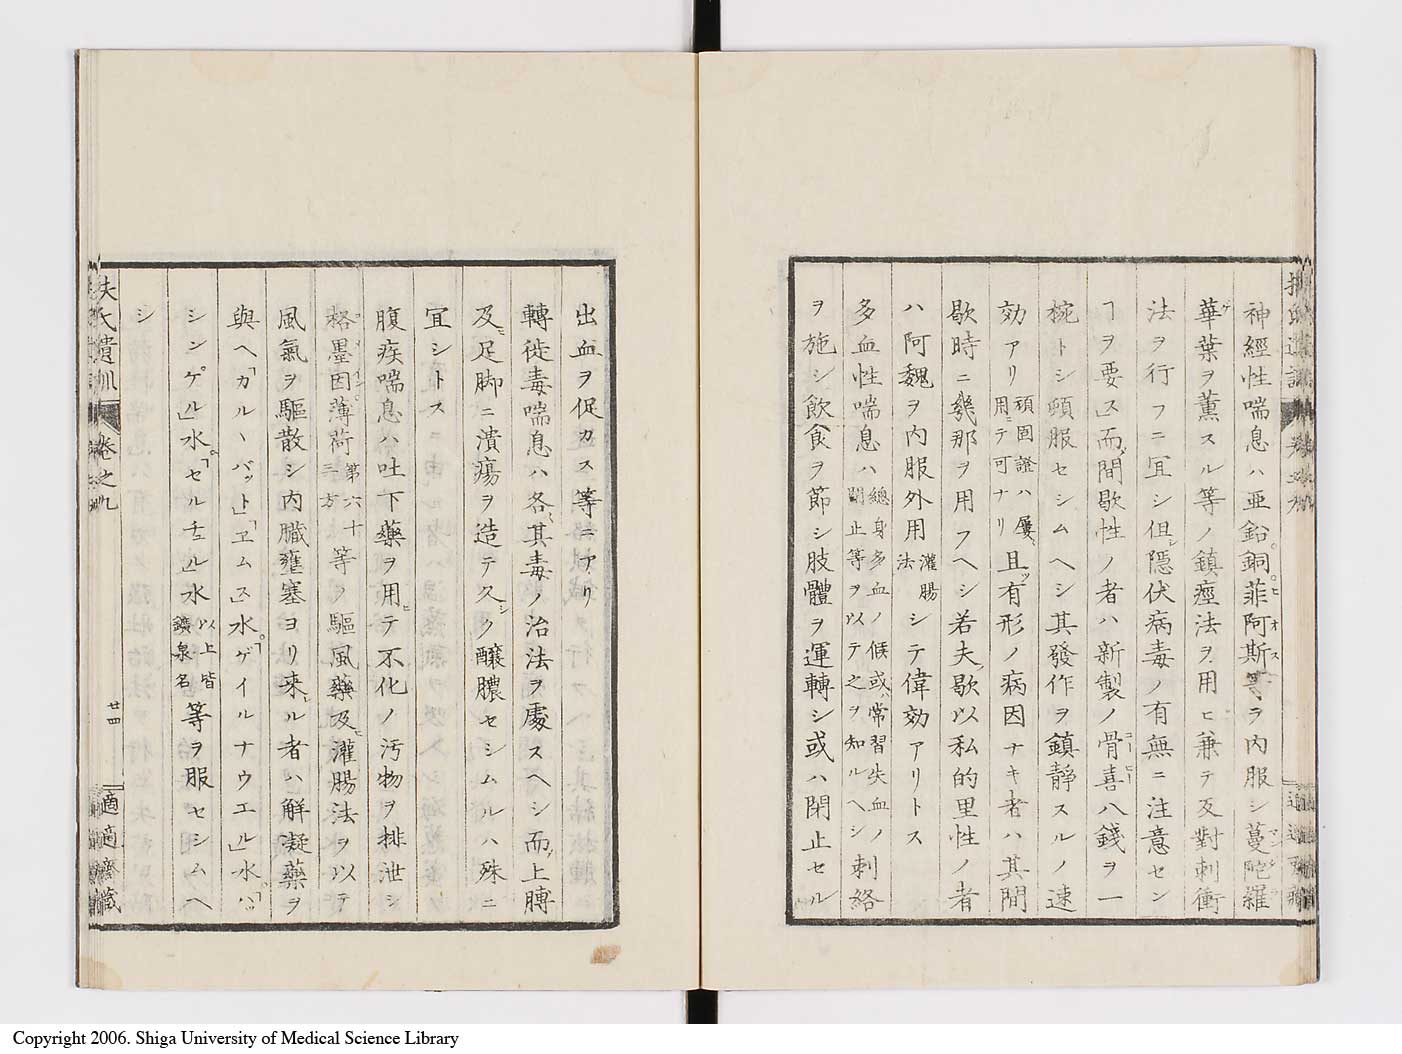 神經性喘息ハ亜鉛銅菲阿斯等ヲ内服シ蔓陀羅
華葉ヲ薫スル等ノ鎮痙法ヲ用ヒ兼テ反對刺衝
法ヲ行フニ冝シ但隱伏病毒ノ有無ニ注意セン
ヿヲ要ス而乄間歇性ノ者ハ新製ノ骨喜八錢ヲ一
椀トシ頓服セシムヘシ其發作ヲ鎮靜スルノ速
効アリ頑固證ハ屢用ニテ可ナリ且有形ノ病因ナキ者ハ其間
歇時ニ幾那ヲ用フヘシ若夫歇以私的里性ノ者
ハ阿魏ヲ内服外用灌腸法シテ偉効アリトス
多血性喘息ハ總身多血ノ候或常習失血ノ閉止等ヲ以テ之ヲ知ルヘシ刺絡
ヲ施シ飲食ヲ節シ肢體ヲ運轉シ或ハ閉止セル
出血ヲ促カス等ニアリ
轉徙毒喘息ハ各其毒ノ治法ヲ處スヘシ而乄上膊
及足脚ニ潰瘍ヲ造テ久ク釀膿セシムルハ殊ニ
冝シトス
腹疾喘息ハ吐下藥ヲ用テ不化ノ汚物ヲ排泄シ
格墨因薄荷第六十三方等ノ驅風藥及灌腸法ヲ以テ
風氣ヲ驅散シ内臓壅塞ヨリ来ル者ハ解凝藥ヲ
與ヘ「カルヽバット」「ヱムス」水「ゲイルナウエル」水「ハッ
シンゲル」水「セルテル」水以上皆鑛泉名等ヲ服セシムヘ
シ
扶氏遺訓
卷之九
廿四
適適齋藏
Copyright 2006. Shiga University of Medical Science Library